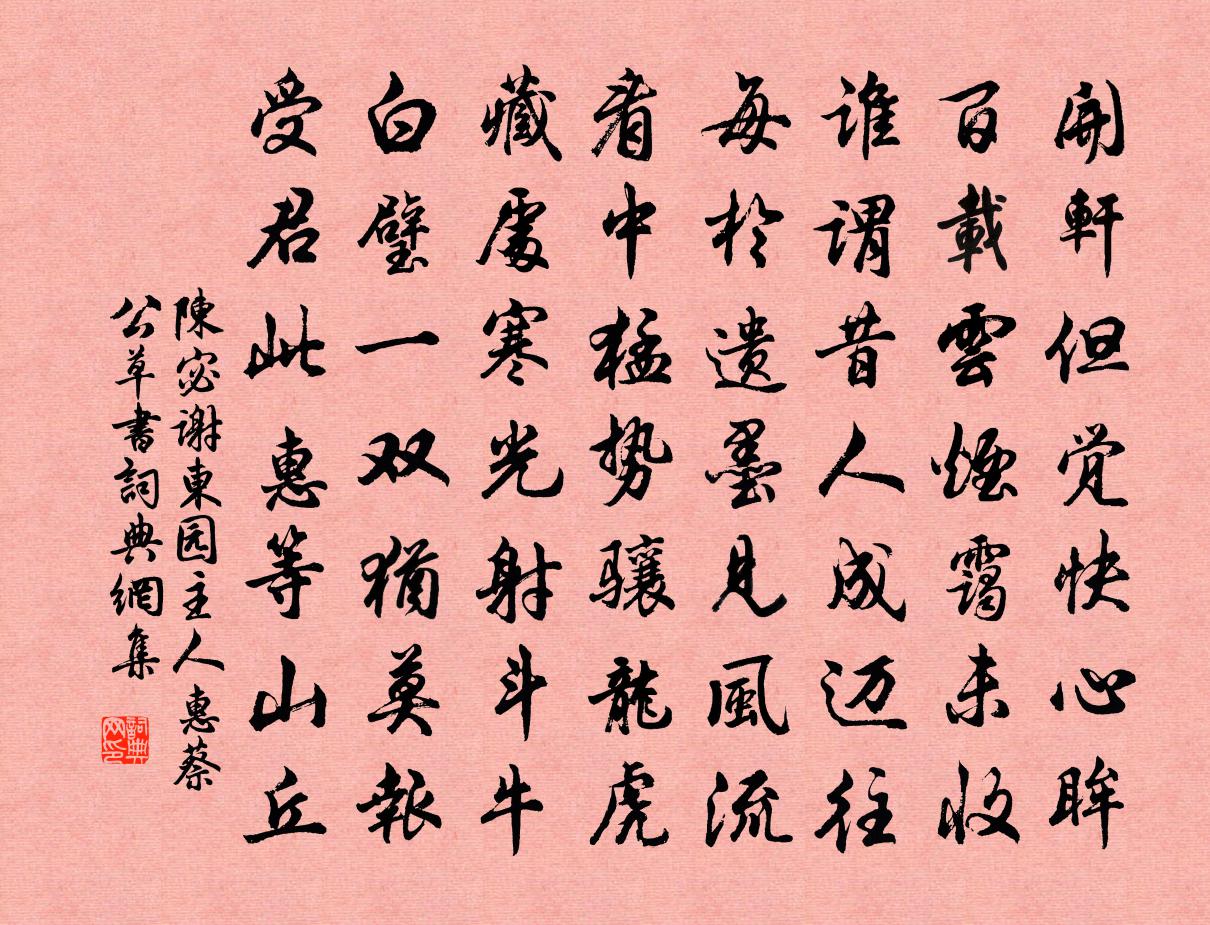 開軒但觉快心眸
百載雲煙靄未收
谁謂昔人成迈往
每於遗墨見風流
看中猛势骧龍虎
藏處寒光射斗牛
白璧一双猶莫報
受君此惠等山丘
陳宓谢東园主人惠蔡
公草書詞典網集
詞典网印